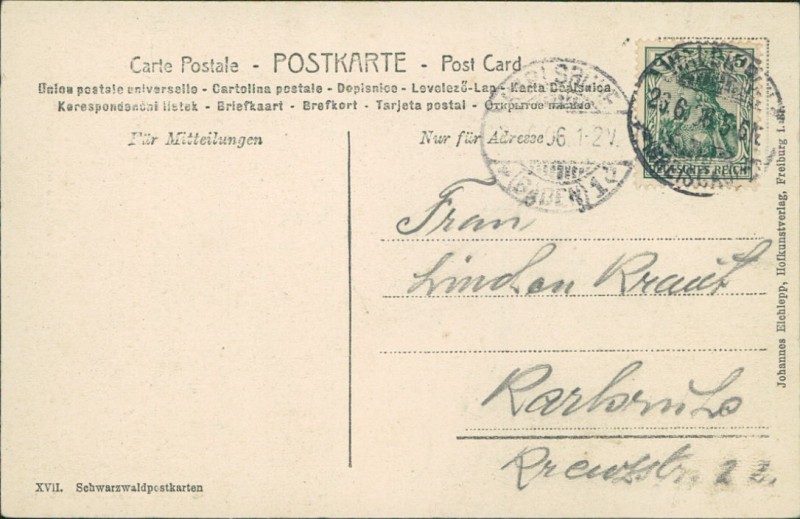 Carte Postale - POSTKARTE - Post Card
Unione postale universelle - Cartolina postale - Dopisnice - Levelező-Lap - Karta
Korespondenční lístek - Briefkaart - Brefkort - Tarjeta postal - Открытое письмо
Für Mitteilungen
Nur für Adresse
KARLSRUHE
06. 1-2 V.
(BADEN) 1
26.6.
DEUTSCHES REICH
Frau
Linchen Kraut
Karlsruhe
Kreuzstr.
Johannes Elchlepp, Hofkunstverlag, Freiburg i. B.
XVII. Schwarzwaldpostkarten